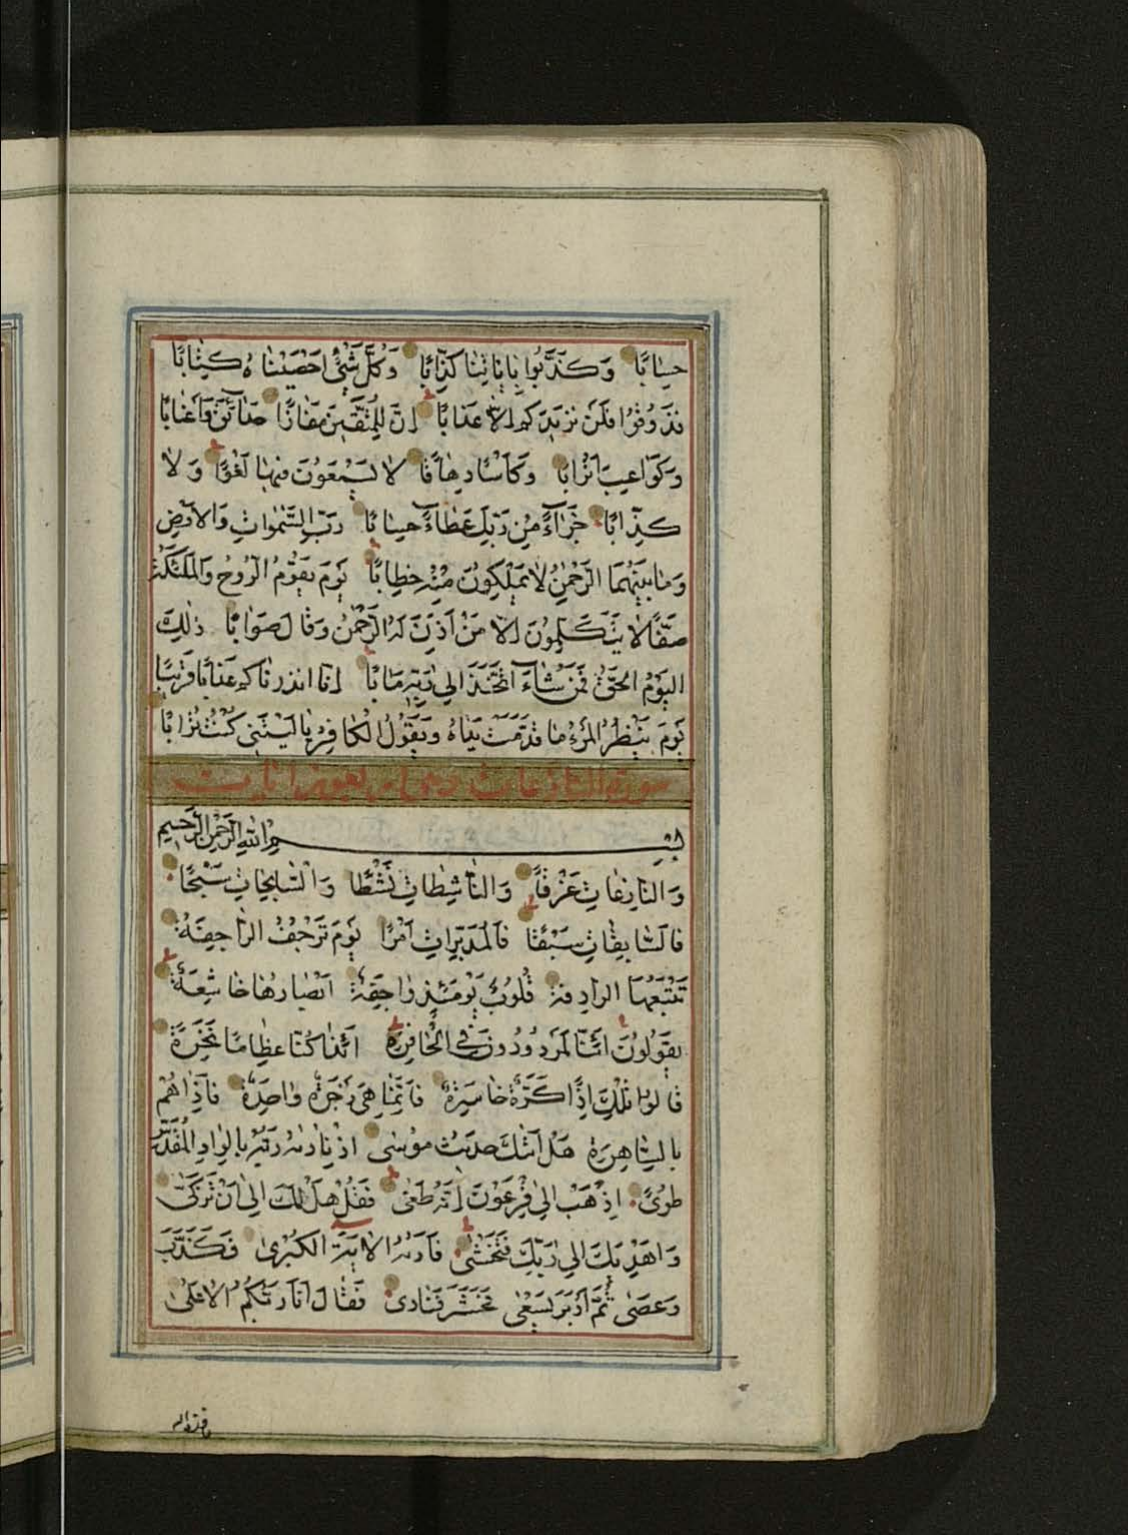 حِسَابًا وَكَذَّبُوا بِاٰيَاتِنَا كِذَّابًا وَكُلَّ شَيْءٍ اَحْصَيْنَاهُ كِتَابًا
فَذُوقُوا فَلَنْ نَزِيدَكُمْ اِلَّا عَذَابًا اِنَّ لِلْمُتَّقِينَ مَفَازًا حَدَائِقَ وَاَعْنَابًا
وَكَوَاعِبَ اَتْرَابًا وَكَأْسًا دِهَاقًا لَا يَسْمَعُونَ فِيهَا لَغْوًا وَلَا
كِذَّابًا جَزَاءً مِنْ رَبِّكَ عَطَاءً حِسَابًا رَبِّ السَّمٰوَاتِ وَالْاَرْضِ
وَمَا بَيْنَهُمَا الرَّحْمٰنِ لَا يَمْلِكُونَ مِنْهُ خِطَابًا يَوْمَ يَقُومُ الرُّوحُ وَالْمَلٰئِكَةُ
صَفًّا لَا يَتَكَلَّمُونَ اِلَّا مَنْ اَذِنَ لَهُ الرَّحْمٰنُ وَقَالَ صَوَابًا ذٰلِكَ
الْيَوْمُ الْحَقُّ فَمَنْ شَاءَ اتَّخَذَ اِلٰى رَبِّهِ مَاٰبًا اِنَّا اَنْذَرْنَاكُمْ عَذَابًا قَرِيبًا
يَوْمَ يَنْظُرُ الْمَرْءُ مَا قَدَّمَتْ يَدَاهُ وَيَقُولُ الْكَافِرُ يَا لَيْتَنِي كُنْتُ تُرَابًا
سورة النازعات وهى اربعون ايات
بِسْمِ اللّٰهِ الرَّحْمٰنِ الرَّحِيمِ
وَالنَّازِعَاتِ غَرْقًا وَالنَّاشِطَاتِ نَشْطًا وَالسَّابِحَاتِ سَبْحًا
فَالسَّابِقَاتِ سَبْقًا فَالْمُدَبِّرَاتِ اَمْرًا يَوْمَ تَرْجُفُ الرَّاجِفَةُ
تَتْبَعُهَا الرَّادِفَةُ قُلُوبٌ يَوْمَئِذٍ وَاجِفَةٌ اَبْصَارُهَا خَاشِعَةٌ
يَقُولُونَ اَئِنَّا لَمَرْدُودُونَ فِي الْحَافِرَةِ اَئِذَا كُنَّا عِظَامًا نَخِرَةً
قَالُوا تِلْكَ اِذًا كَرَّةٌ خَاسِرَةٌ فَاِنَّمَا هِيَ زَجْرَةٌ وَاحِدَةٌ فَاِذَا هُمْ
بِالسَّاهِرَةِ هَلْ اَتٰيكَ حَدِيثُ مُوسٰى اِذْ نَادٰيهُ رَبُّهُ بِالْوَادِ الْمُقَدَّسِ
طُوًى اِذْهَبْ اِلٰى فِرْعَوْنَ اِنَّهُ طَغٰى فَقُلْ هَلْ لَكَ اِلٰى اَنْ تَزَكّٰى
وَاَهْدِيَكَ اِلٰى رَبِّكَ فَتَخْشٰى فَاَرٰيهُ الْاٰيَةَ الْكُبْرٰى فَكَذَّبَ
وَعَصٰى ثُمَّ اَدْبَرَ يَسْعٰى فَحَشَرَ فَنَادٰى فَقَالَ اَنَا رَبُّكُمُ الْاَعْلٰى